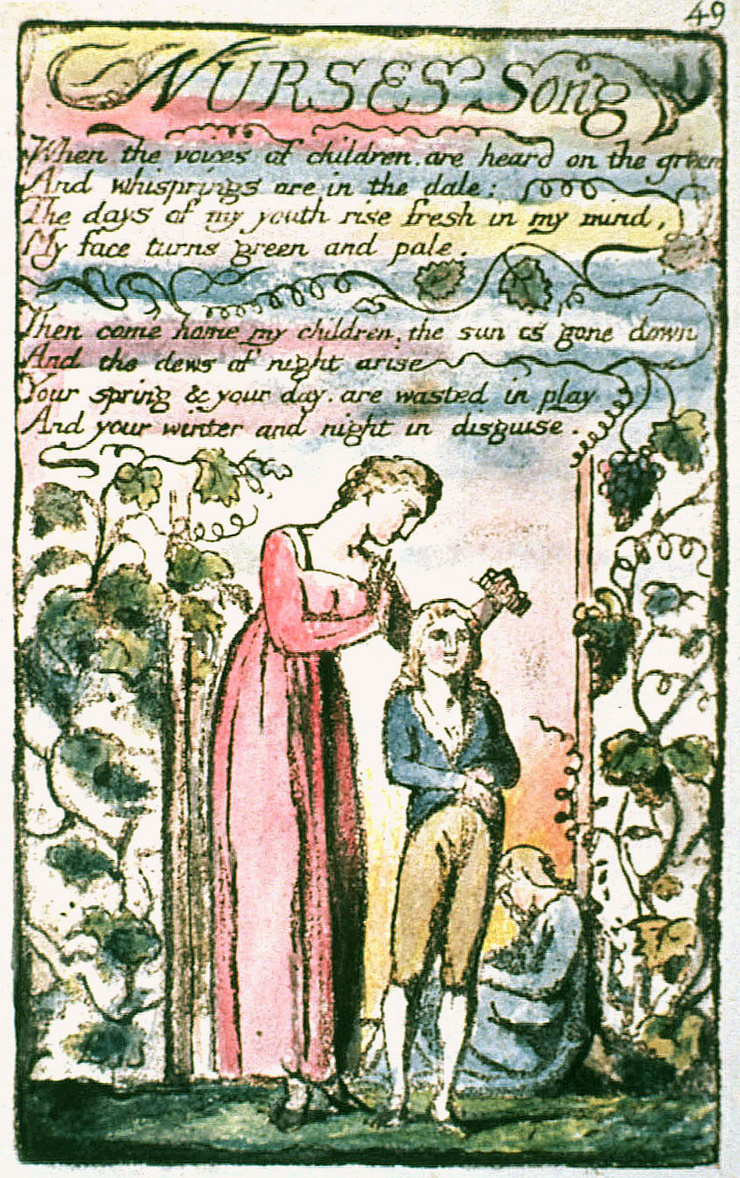 49
NURSES Song
When the voices of children. are heard on the green
And whisprings are in the dale:
The days of my youth rise fresh in my mind,
My face turns green and pale.
Then come home my children, the sun is gone down
And the dews of night arise
Your spring & your day. are wasted in play
And your winter and night in disguise.